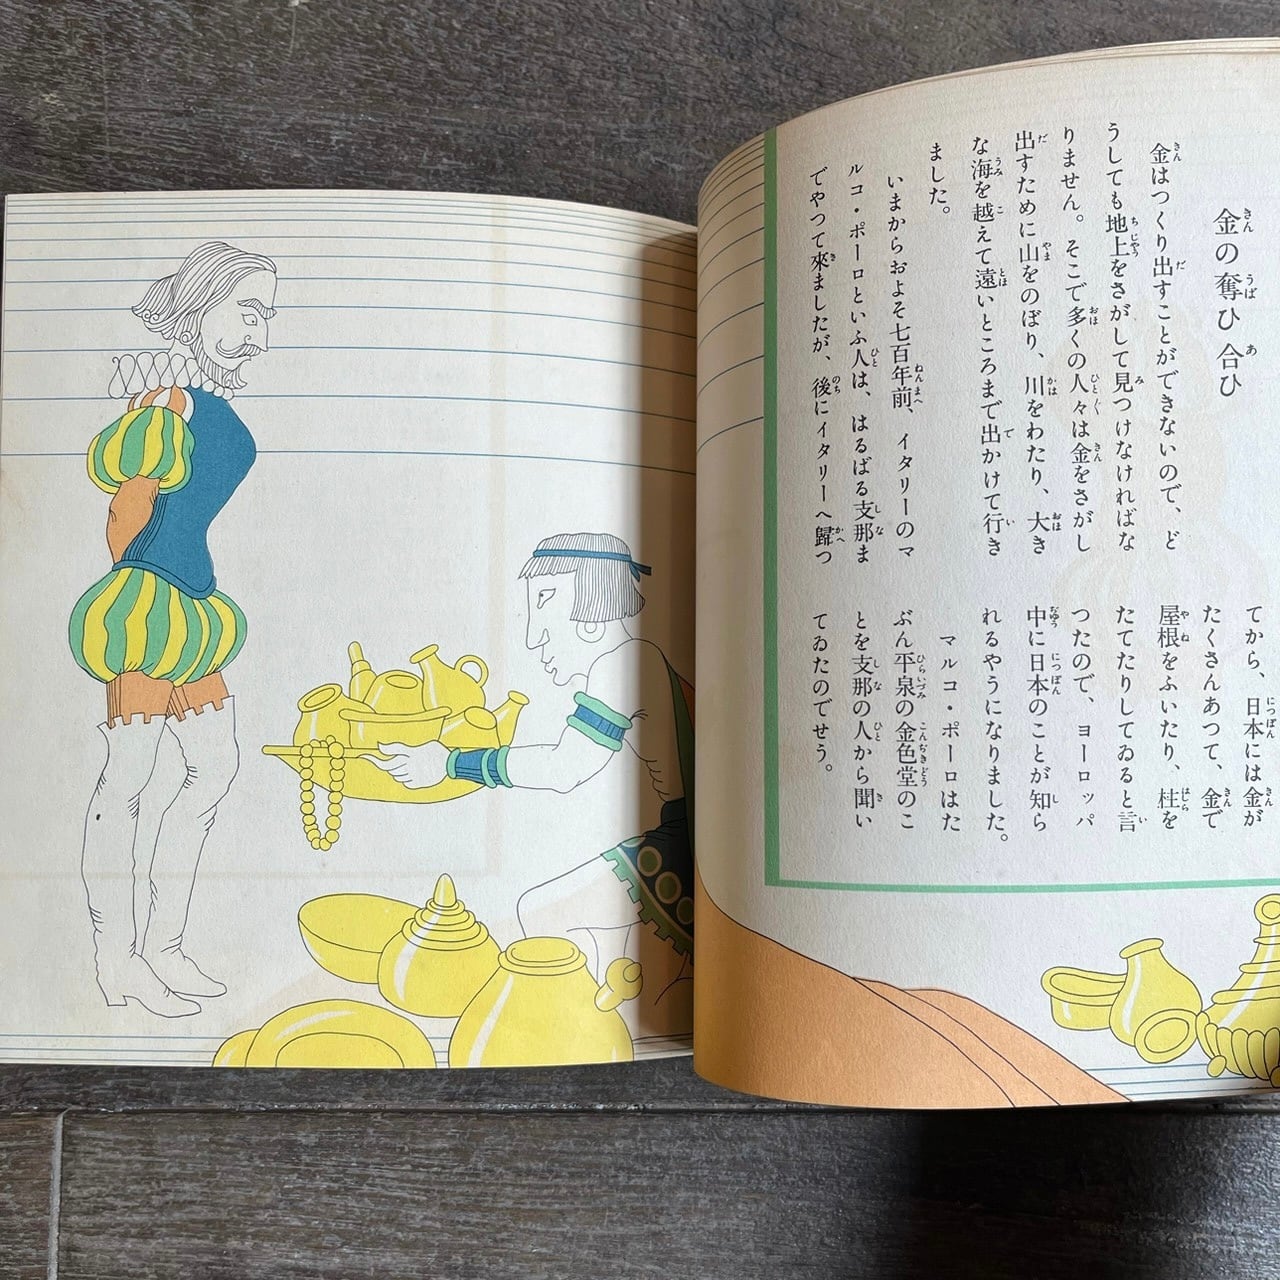 金の奪ひ合ひ
金はつくり出すことができないので、ど
うしても地上をさがして見つけなければな
りません。そこで多くの人々は金をさがし
出すために山をのぼり、川をわたり、大き
な海を越えて遠いところまで出かけて行き
ました。
いまからおよそ七百年前、イタリーのマ
ルコ・ポーロといふ人は、はるばる支那ま
でやつて來ましたが、後にイタリーへ歸つ
てから、日本には金が
たくさんあつて、金で
屋根をふいたり、柱を
たてたりしてゐると言
つたので、ヨーロッパ
中に日本のことが知ら
れるやうになりました。
マルコ・ポーロはた
ぶん平泉の金色堂のこ
とを支那の人から聞い
てゐたのでせう。